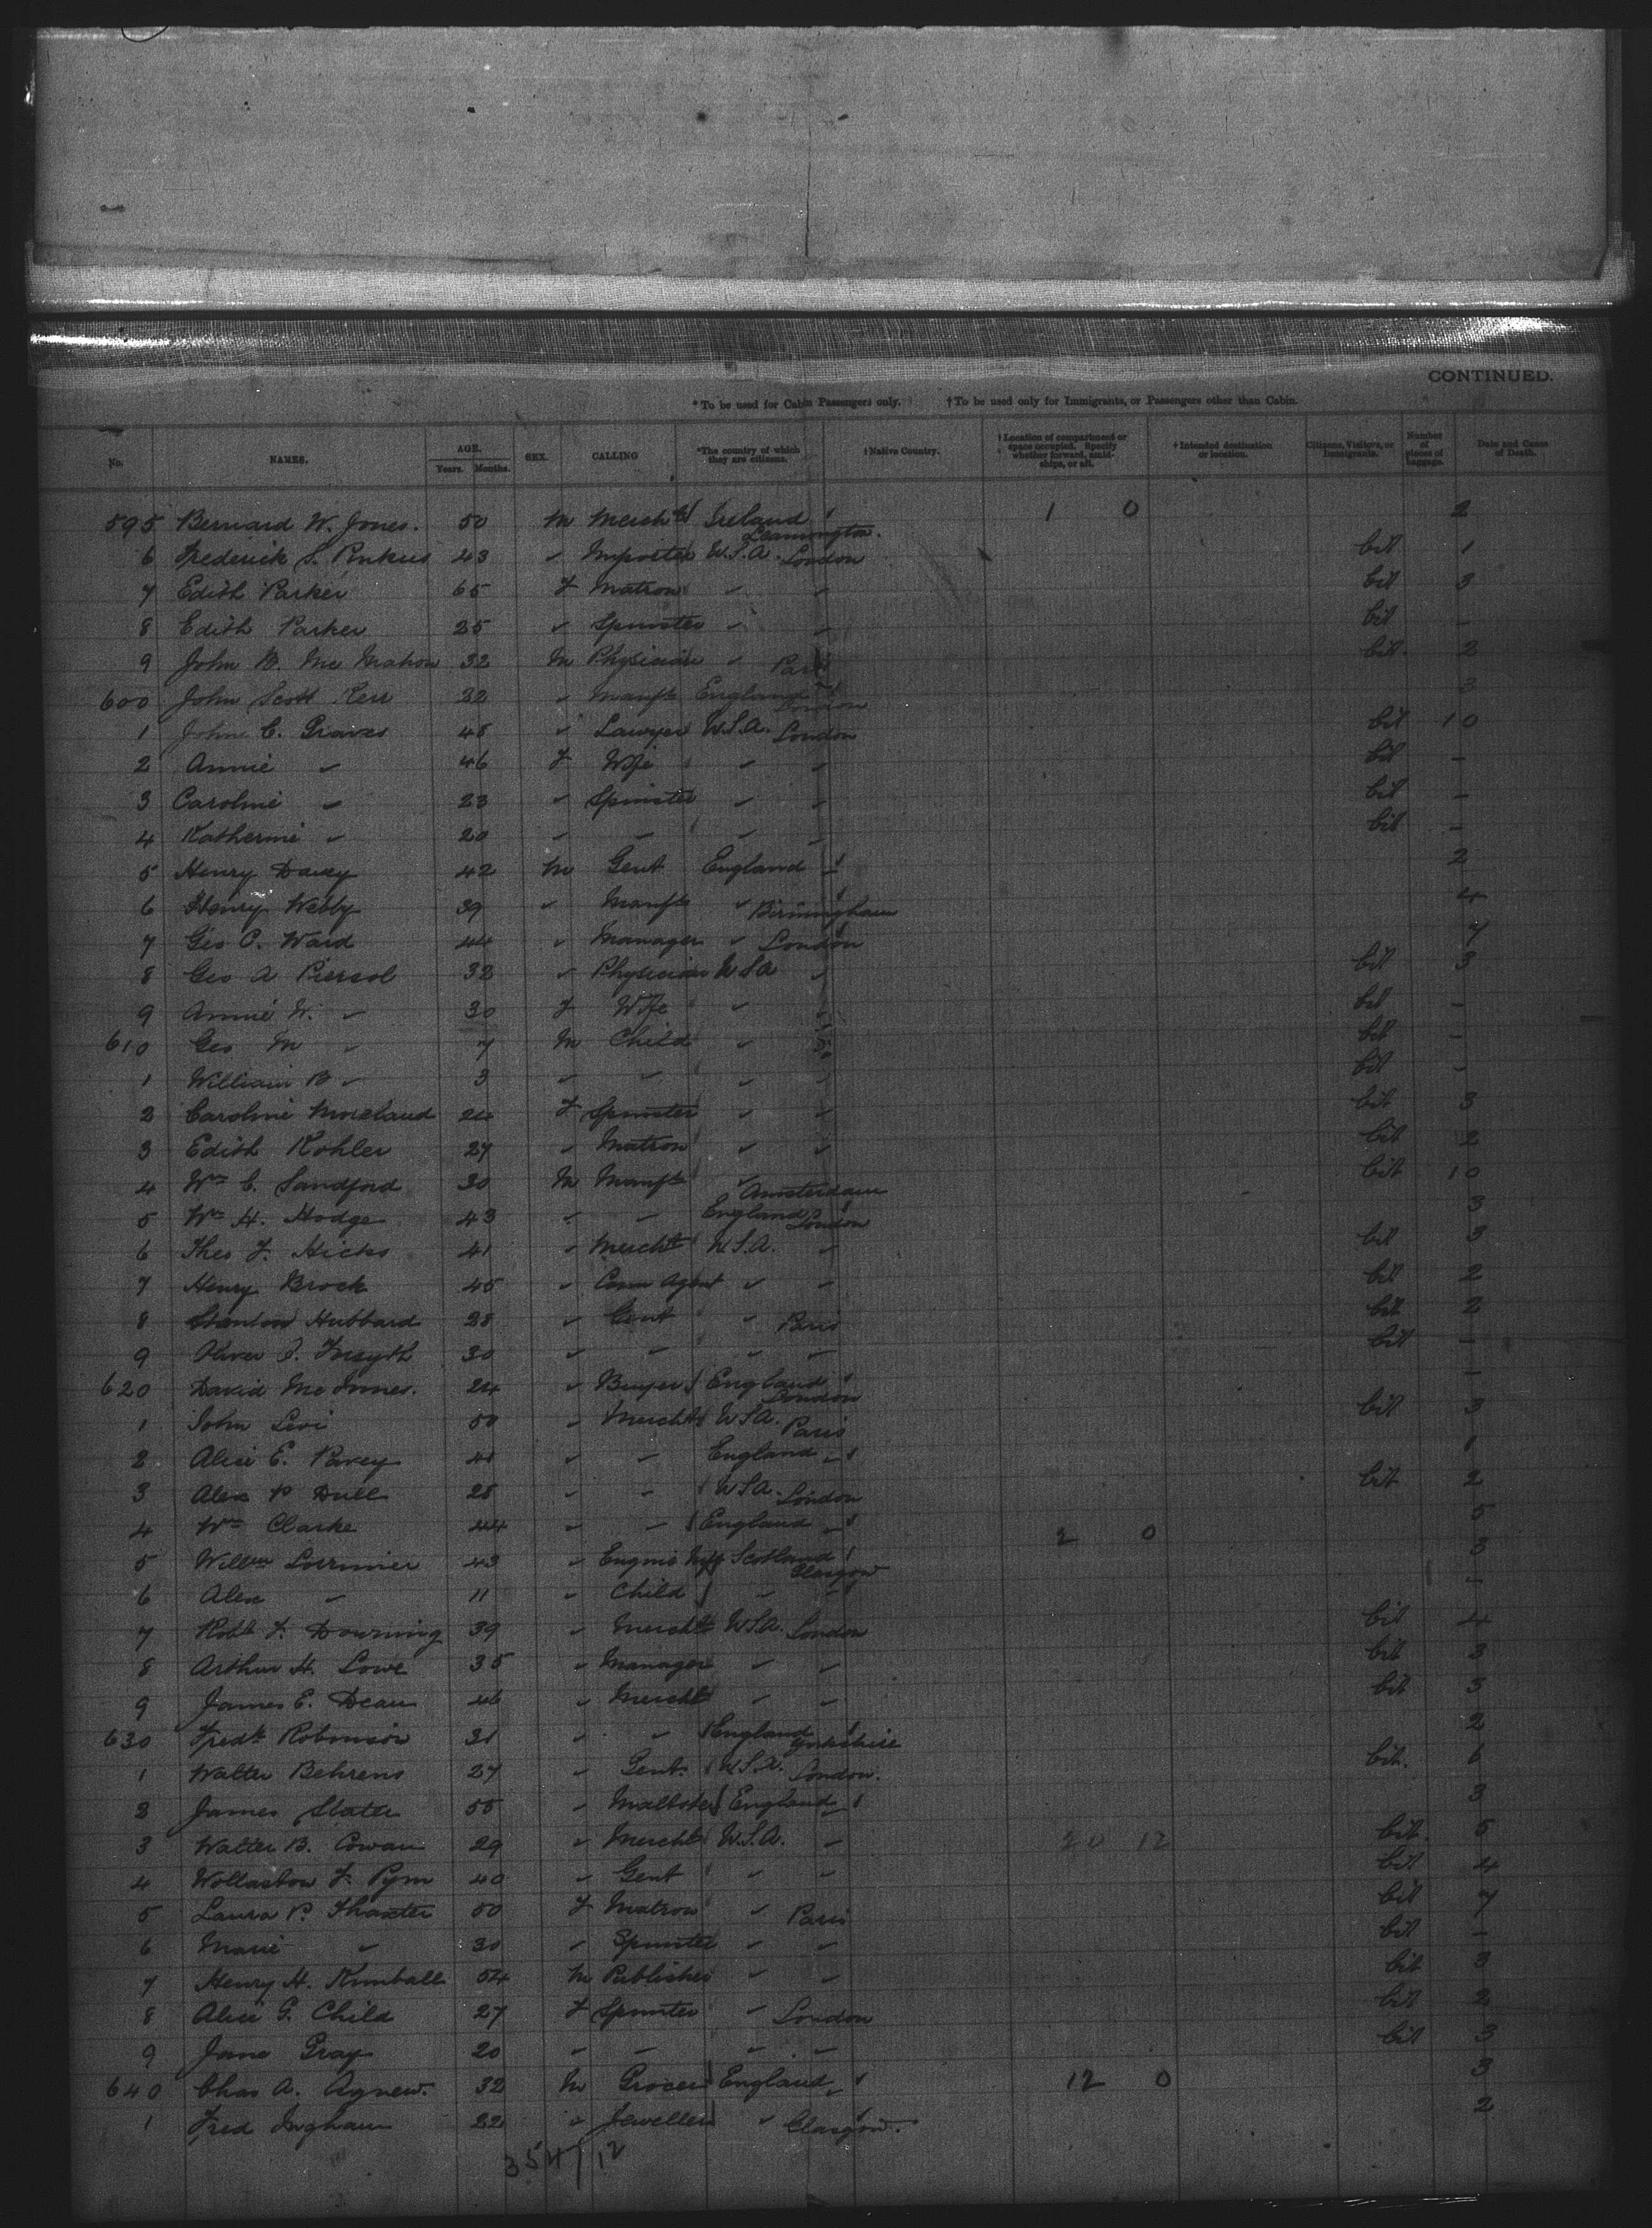 CONTINUED.
*To be used for Cabin Passengers only. †To be used only for Immigrants, or Passengers other than Cabin.
No. NAMES. AGE. Years. Months. SEX. CALLING *The country of which they are citizens. †Native Country. †Location of compartment or space occupied. Specify whether forward, amidships, or aft. †Intended destination or location. Citizens, Visitors, or Immigrants. Number of pieces of baggage. Date and Cause of Death.
595 Bernard W. Jones. 50 M Mercht Ireland Leamington. 1 0 2
6 Frederick S. Pinkus 43 " Importer U.S.A. London Cit 1
7 Edith Parker 65 F Matron " " Cit 3
8 Edith Parker 25 " Spinster " " Cit –
9 John B. Mc Mahon 32 M Physician " Paris Cit. 2
600 John Scott Kerr 32 " Manufr England London 3
1 John C. Graves 48 " Lawyer U.S.A. London Cit 10
2 Annie " 46 F Wife " " Cit –
3 Caroline " 23 " Spinster " " Cit –
4 Katherine " 20 " " " " Cit –
5 Henry Davey 42 M Gent England " 2
6 Henry Webby 39 " Manufr " Birmingham 4
7 Geo P. Ward 44 " Manager " London 7
8 Geo A Piersol 32 " Physician U.S.A " Cit 3
9 Annie W. " 30 F Wife " Cit –
610 Geo M " 7 M Child " " Cit –
1 William B " 3 " " " " Cit –
2 Caroline Moreland 24 F Spinster " " Cit 3
3 Edith Kohler 27 " Matron " " Cit 2
4 Wm C. Sandford 30 M Manufr " Amsterdam Cit 10
5 Wm H. Hodge 43 " " England London 3
6 Theo F. Hicks 41 " Mercht U.S.A. " Cit 3
7 Henry Brock 45 " Com Agent " " Cit 2
8 Stanton Hubbard 28 " Gent " Paris Cit 2
9 Oliver S. Forsyth 30 " " " " Cit –
620 David Mc Innes. 24 " Buyer England London –
1 John Levi 50 " Mercht U.S.A. Paris Cit 3
2 Alice E. Pavey 41 " " England " 1
3 Alex P Dull 28 " " U.S.A. London Cit 2
4 Wm Clarke 44 " " England " 2 0 5
5 Willm Lorrimer 43 " Scotland Glasgow 3
6 Alex " 11 " Child " " –
7 Robt F. Downing 39 " Mercht U.S.A. London Cit 4
8 Arthur H. Lowe 35 " Manager " " Cit 3
9 James E. Dean 46 " Mercht " " Cit 3
630 Fredk Robinson 31 " " England Yorkshire 2
1 Walter Behrens 27 " Gent. U.S.A. London. Cit. 6
2 James Slater 55 " Maltster England " 3
3 Walter B. Cowan 29 " Mercht U.S.A. " 20 12 Cit. 5
4 Wollaston F. Pym 40 " Gent " " Cit 4
5 Laura P. Thaxter 50 F Matron " Paris Cit 7
6 Marie " 30 " Spinster " " Cit –
7 Henry H. Kimball 54 M Publisher " " Cit 3
8 Alice G. Child 27 F Spinster " London Cit 2
9 Jane Gray 20 " " " " Cit 3
640 Chas A. Agnew. 32 M Grocer England " 12 0 3
1 Fred Ingham 22 " Jeweller " Glasgow. 2
354/12